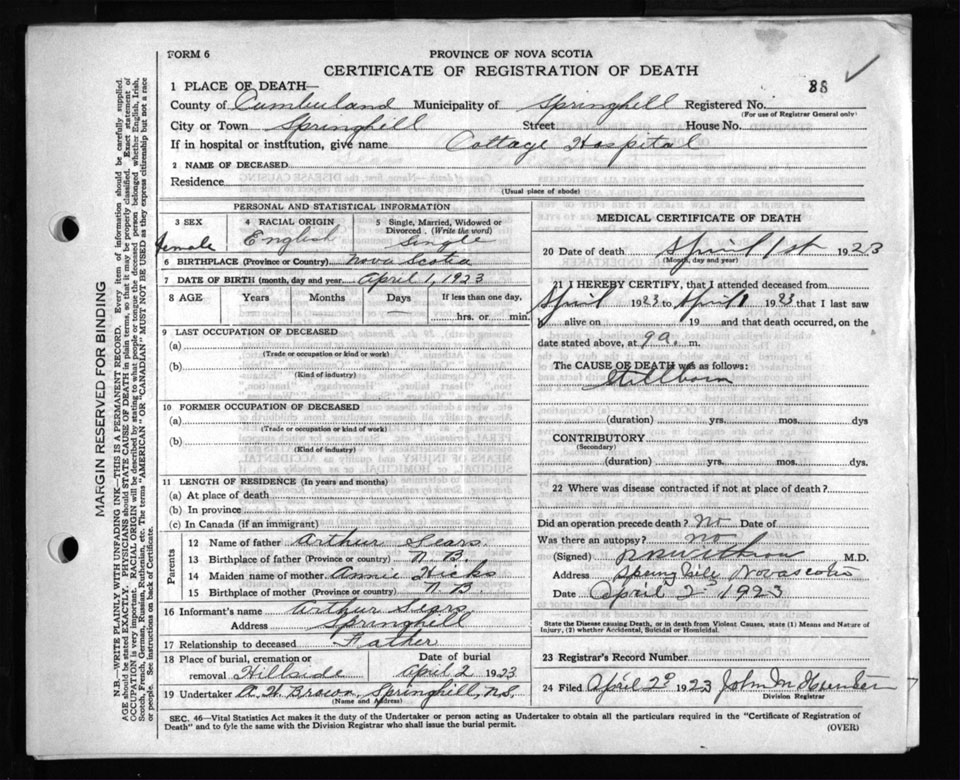 FORM 6
PROVINCE OF NOVA SCOTIA
CERTIFICATE OF REGISTRATION OF DEATH
1 PLACE OF DEATH—
County of Cumberland Municipality of Springhill Registered No. 38
(For use of Registrar General only)
City or Town Springhill Street House No.
If in hospital or institution, give name Cottage Hospital
2 NAME OF DECEASED
Residence
(Usual place of abode)
PERSONAL AND STATISTICAL INFORMATION
3 SEX female
4 RACIAL ORIGIN English
5 Single, Married, Widowed or Divorced. (Write the word) Single
6 BIRTHPLACE (Province or Country) Nova Scotia
7 DATE OF BIRTH (month, day and year) April 1, 1923
8 AGE Years Months Days If less than one day,
hrs. or min.
9 LAST OCCUPATION OF DECEASED
(a)
(Trade or occupation or kind or work)
(b)
(Kind of industry)
10 FORMER OCCUPATION OF DECEASED
(a)
(Trade or occupation or kind or work)
(b)
(Kind of industry)
11 LENGTH OF RESIDENCE (In years and months)
(a) At place of death
(b) In province
(c) In Canada (if an immigrant)
Parents
12 Name of father Arthur Sears.
13 Birthplace of father (Province or country) N. B.
14 Maiden name of mother Annie Hicks
15 Birthplace of mother (Province or country) N. B.
16 Informant's name Arthur Sears
Address Springhill
17 Relationship to deceased Father
18 Place of burial, cremation or removal Hillside
Date of burial April 2 1923
19 Undertaker A. H. Brown, Springhill, N.S.
(Name and Address)
MEDICAL CERTIFICATE OF DEATH
20 Date of death April 1st 1923
(Month, day and year)
21 I HEREBY CERTIFY, that I attended deceased from
April 1923 to April 1 1923 that I last saw
alive on 19 and that death occurred, on the
date stated above, at 9 a. m.
The CAUSE OF DEATH was as follows:
Stillborn
(duration) yrs. mos. dys
CONTRIBUTORY
(Secondary)
(duration) yrs. mos. dys.
22 Where was disease contracted if not at place of death?
Did an operation precede death? No Date of
Was there an autopsy? no
(Signed) M.D.
Address Springhill Nova scotia
Date April 2 1923
State the Disease causing Death, or in death from Violent Causes, state (1) Means and Nature of
Injury, (2) whether Accidental, Suicidal or Homicidal.
23 Registrar's Record Number
24 Filed April 2d 1923 John M
Division Registrar
SEC. 46—Vital Statistics Act makes it the duty of the Undertaker or person acting as Undertaker to obtain all the particulars required in the "Certificate of Registration of
Death" and to fyle the same with the Division Registrar who shall issue the burial permit.
(OVER)
MARGIN RESERVED FOR BINDING
N.B.—WRITE PLAINLY WITH UNFADING INK—THIS IS A PERMANENT RECORD. Every item of information should be carefully supplied.
AGE should be stated EXACTLY. PHYSICIANS should STATE CAUSE OF DEATH in plain terms, so that it may be properly classified. Exact statement of
OCCUPATION is very important. RACIAL ORIGIN will be described by stating to what people or tongue the deceased person belonged whether English, Irish,
Scotch, French, German, Russian, Ruthenian, etc. The terms "AMERICAN" OR "CANADIAN" MUST NOT BE USED as they express citizenship but not a race
or people. See instructions on back of Certificate.